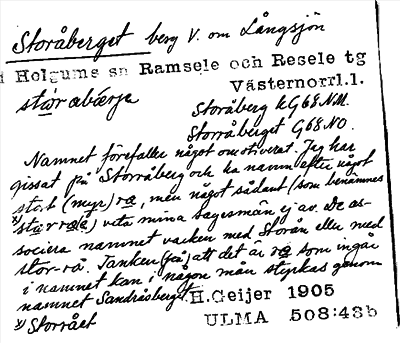 Storåberget berg V. om Långsjön
Holgums sn Ramsele och Resele tg
Västernorrl.l.
Storåberg kG68NM.
Storråberget G68NO.
Namnet förefaller något omotiverat. Jag har
gissat på Storråberg och ha namn efter något
(myr) ra, men något sådant (som benämnes
veta mina sagesmän ej av. De as-
sociera namnet varken med Storån eller med
stor-rå. Tanken (på) att det är rå som ingår
i namnet kan i någon mån styrkas genom
namnet Sandråsberget.
H.Geijer 1905
x) Storrået
ULMA 508:43b